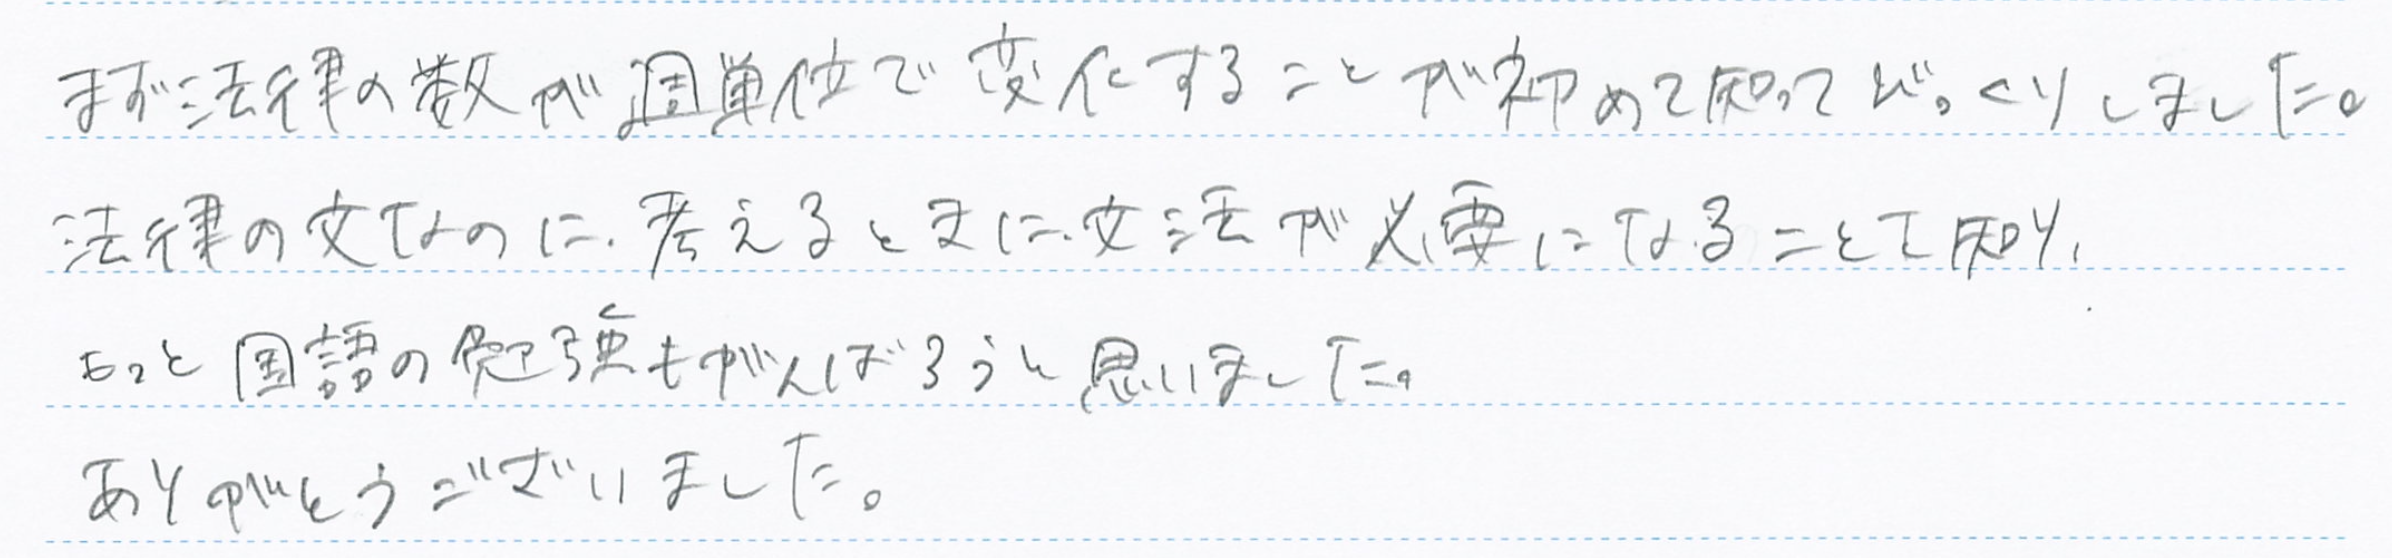 まず法律の数が週単位で変化することが初めて知ってびっくりしました。
法律の文なのに、考えるときに文法が必要になることて知り、
もっと国語の勉強もがんばろうと思いました。
ありがとうございました。